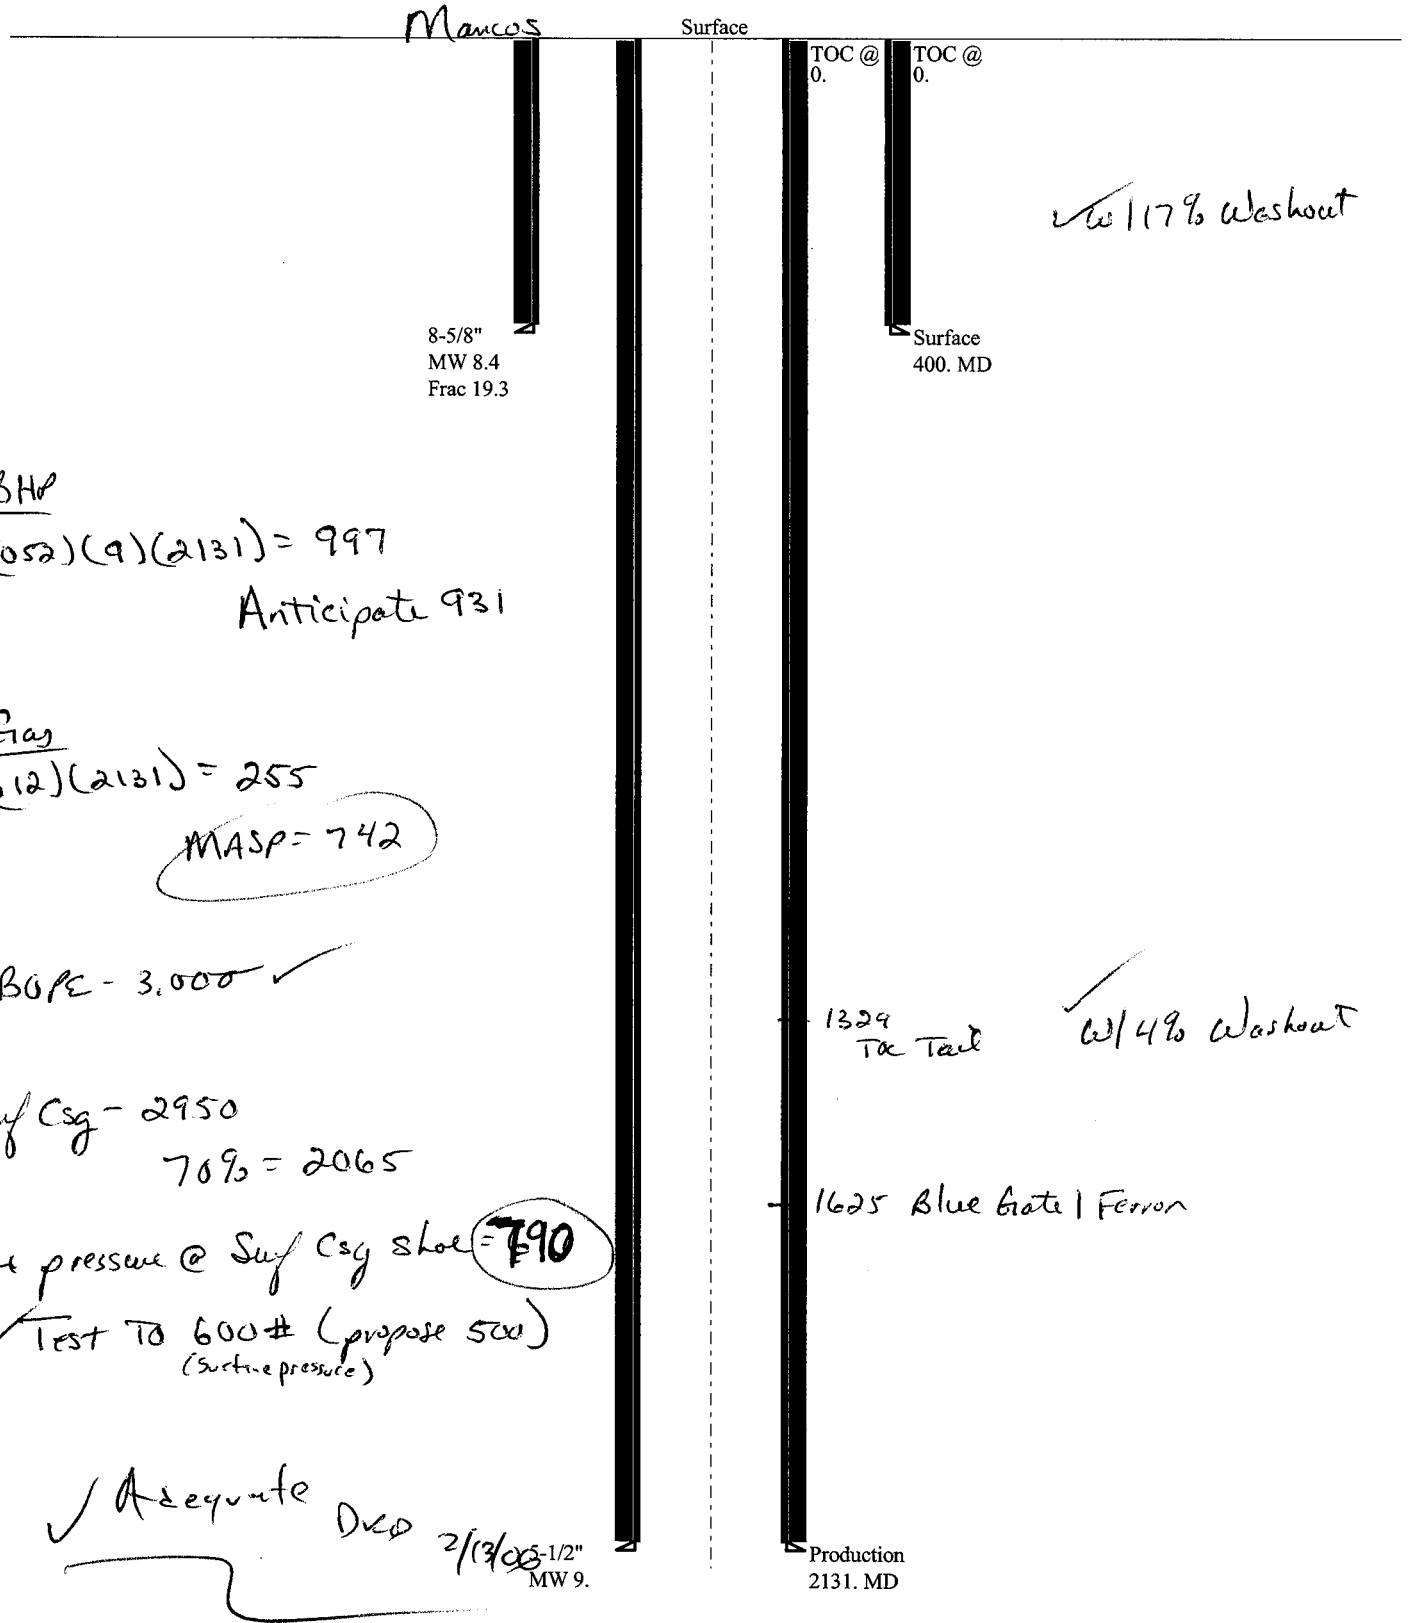 Mancos
Surface
TOC @
0.
TOC @
0.
w/17% Washout
8-5/8"
MW 8.4
Frac 19.3
Surface
400. MD
BHP
052)(9)(2131) = 997
Anticipate 931
Gas
.12)(2131) = 255
MASP = 742
BOPE - 3,000 ✓
1329
TOC Tail
w/4% Washout
Csg - 2950
70% = 2065
1625 Blue Gate | Ferron
pressure @ Surf Csg shoe = 790
Test To 600# (propose 500)
(surface pressure)
✓ Adequate
DKD 2/13/06
5-1/2"
MW 9.
Production
2131. MD